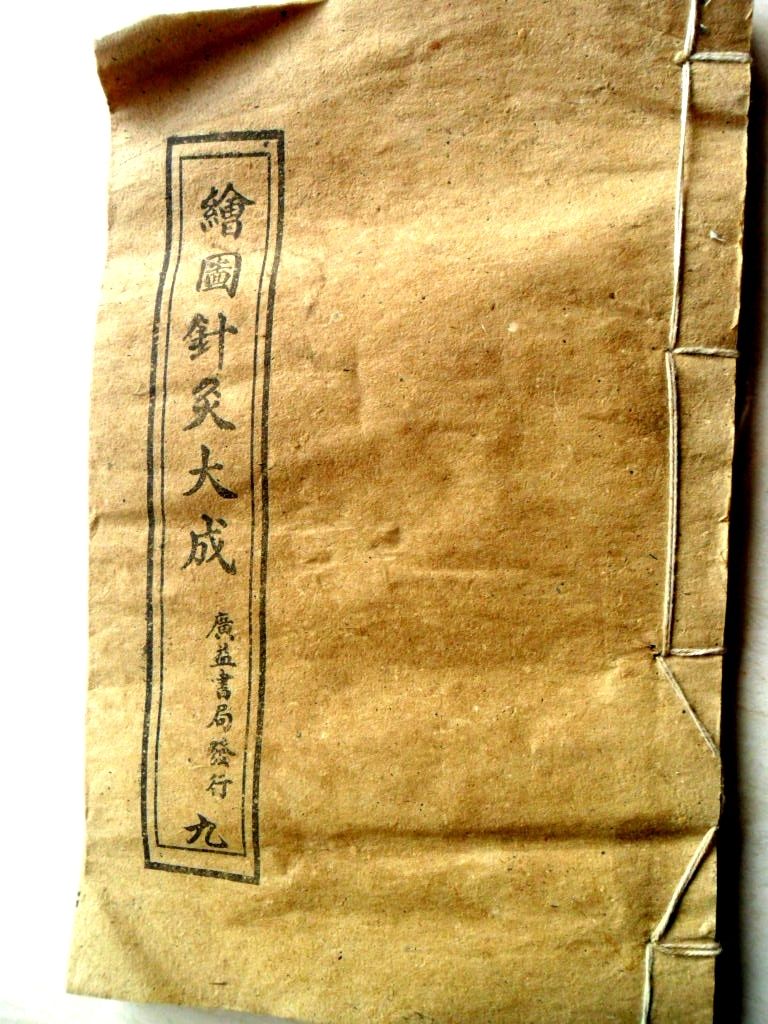 繪圖針灸大成
廣益書局發行
九